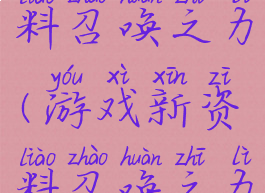 liào zhào huàn zhī lì
料召唤之力
yóu xì xīn zī
(游戏新资
liào zhào huàn zhī lì
料召唤之力